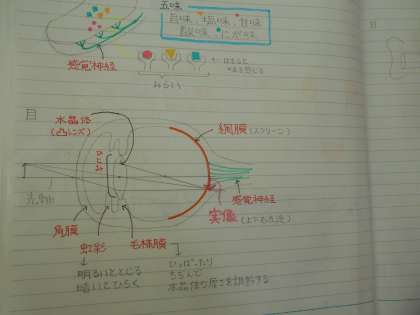 五味
旨味、塩味、甘味
酸味、にが味
感覚神経
みらい
目
水晶体
(凸レンズ)
網膜(スクリーン)
感覚神経
実像(上下左右逆)
角膜
虹彩
毛様膜
明るいととじる
暗いとひらく
ひっぱったり
ちぢんで
水晶体の厚さを調節する